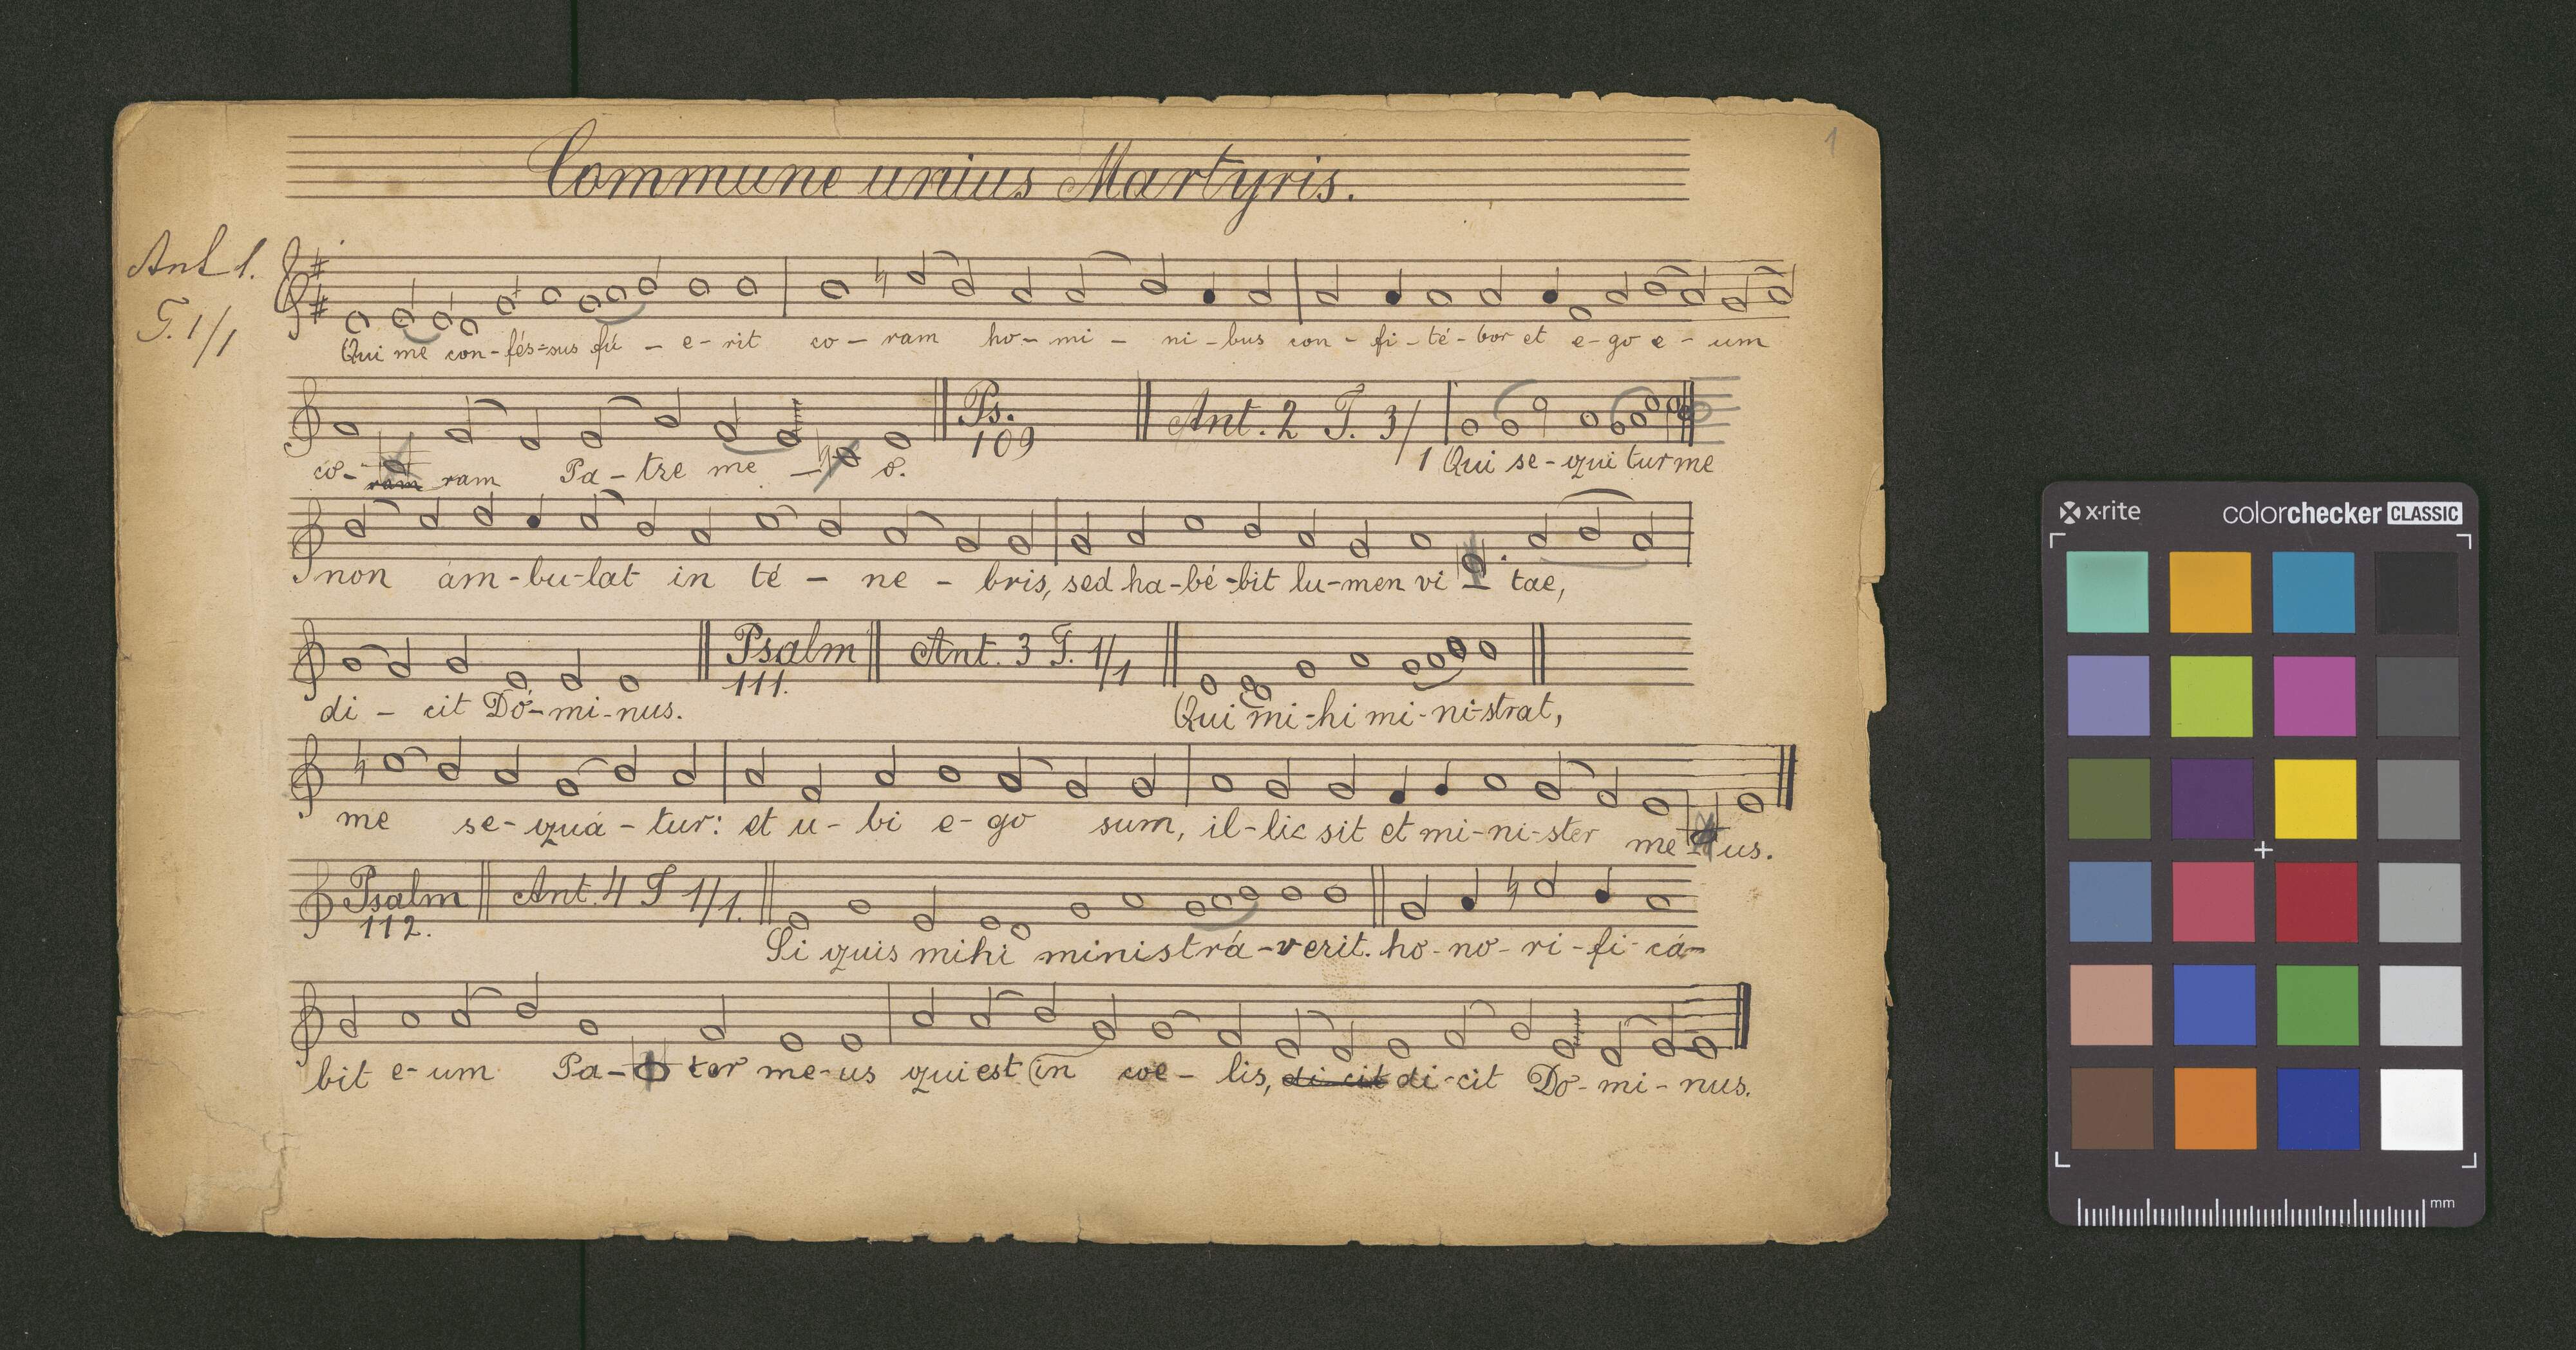 1
Commune unius Martyris.
Ant 1.
T. 1/1
Qui me con-fés-sus fú - e-rit co-ram ho-mi - ni-bus con-fi-té-bor et e-go e-um
Ps. 109 Ant. 2 T. 3/1
co- ram ram Pa-tre me - o. Qui se-qui tur me
non ám-bu-lat in té - ne - bris, sed ha-bé-bit lu-men vi - tae,
Psalm 111. Ant. 3 T. 1/1
di - cit Dó-mi-nus. Qui mi-hi mi-ni-strat,
me se-quá-tur: et u-bi e-go sum, il-lic sit et mi-ni-ster me-us.
Psalm 112. Ant. 4 T 1/1.
Si quis mihi ministrá-verit. ho-no-ri-fi-cá-
bit e-um Pa- ter me-us qui est in coe-lis, di-cit di-cit Do-mi-nus.
x-rite
colorchecker CLASSIC
mm